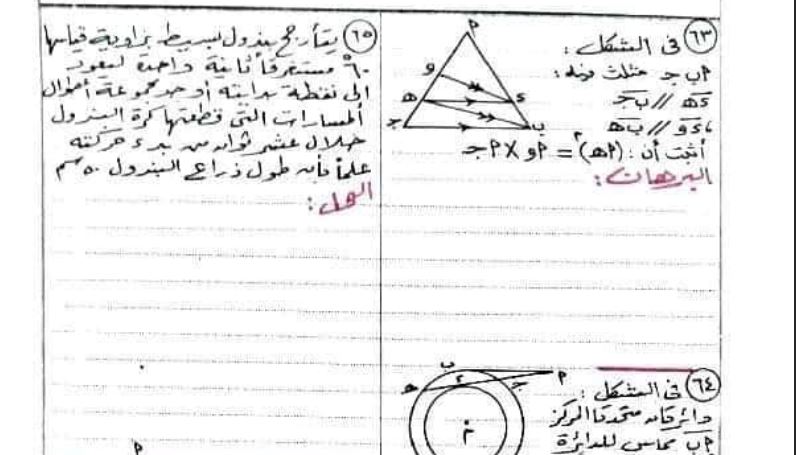 ٦٣ فى الشكل :
أ ب جـ مثلث فيه :
د هـ // ب جـ
، د و // ب هـ
أثبت أن : (أ هـ)٢ = أ و × أ جـ
البرهان :
أ
و
هـ
د
جـ
ب
٦٤ فى الشكل :
دائرتان متحدتا المركز
أ ب مماس للدائرة
ب
أ
هـ
جـ
م
٦٥ يتأرجح بندول بسيط بزاوية قياسها
٦٠° مستغرقاً ثانية واحدة ليعود
الى نقطة بدايته أوجد مجموعة أطوال
المسارات التى قطعتها كرة البندول
خلال عشر ثوان من بدء حركته
علماً بأن طول ذراع البندول ٥٠ سم
الحل :
أ